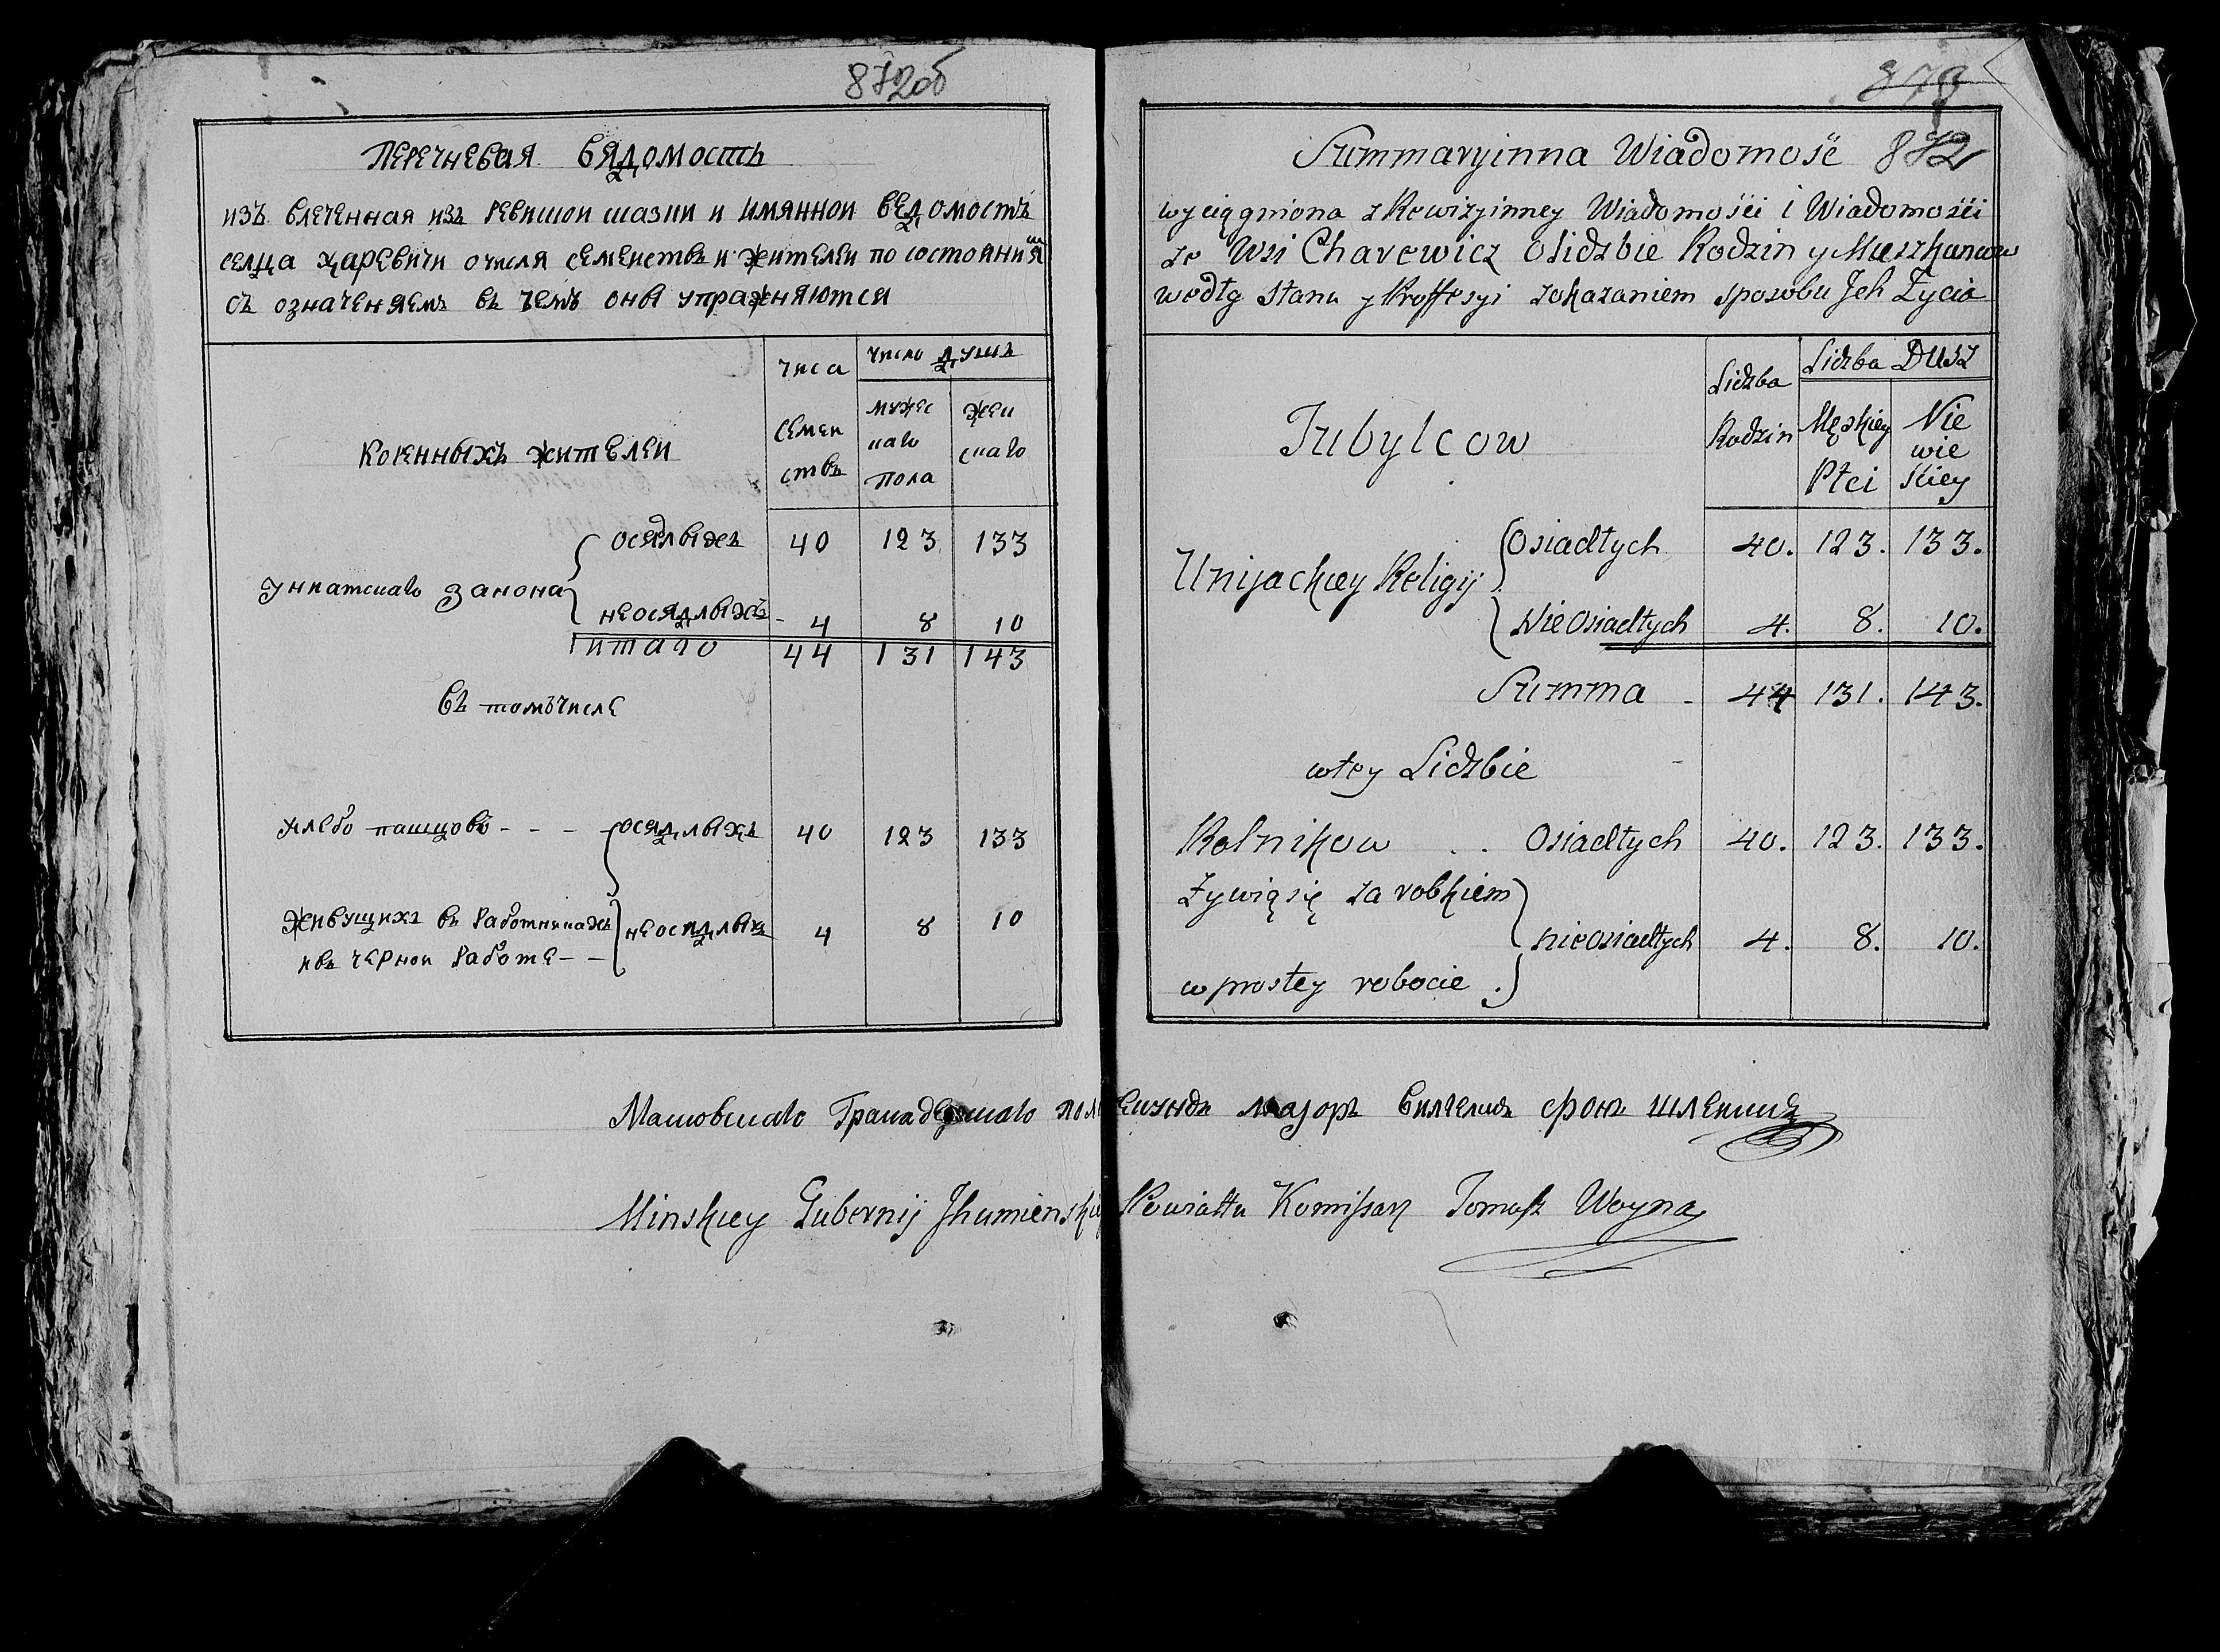 872об
Перечневая вядомость
изъ влеченная изъ ревишои шазпи и имяннои ведомостъ
селца Царевичи очисля семеиствъ и жителеи по состоянию
съ означеняемъ въ чемъ оны упражняются
числа семеиствъ
число душъ
мужескаго пола
женскаго
коренныхъ жителеи
униатскаго закона
осядлыхъ 40 123 133
неосядлыхъ - 4 8 10
итаго 44 131 143
въ томъ числе
хлебо пашцовъ - - - осядлыхъ 40 123 133
живущихъ въ работникахъ
ивъ чернои работе - -
неосядлыхъ 4 8 10
872
Summaryinna Wiadomość
wyciągniona z Rewizyinney Wiadomości i Wiadomości
ze Wsi Charewicz Olidzbie Rodzin y Mieszkancow
wedłg stanu y Proffesyi zokazaniem sposobu Jch Zycia
Lidzba Rodzin
Lidzba Dusz
Męskiey Płci
Niewieskiey
Tubylcow
Unijackiey Religij
Osiadłych 40. 123. 133.
Nie Osiadłych 4. 8. 10.
Summa - 44 131. 143.
wtey Lidzbie
Rolnikow . . Osiadłych 40. 123. 133.
Zywią się za robkiem
w prostey robocie .
nieosiadłych 4. 8. 10.
Московскаго Гранадерскаго пол маjоръ фонъ
Minskiey Gubernij Jhumienskiey Powiattu Komissarz Tomasz Woyna